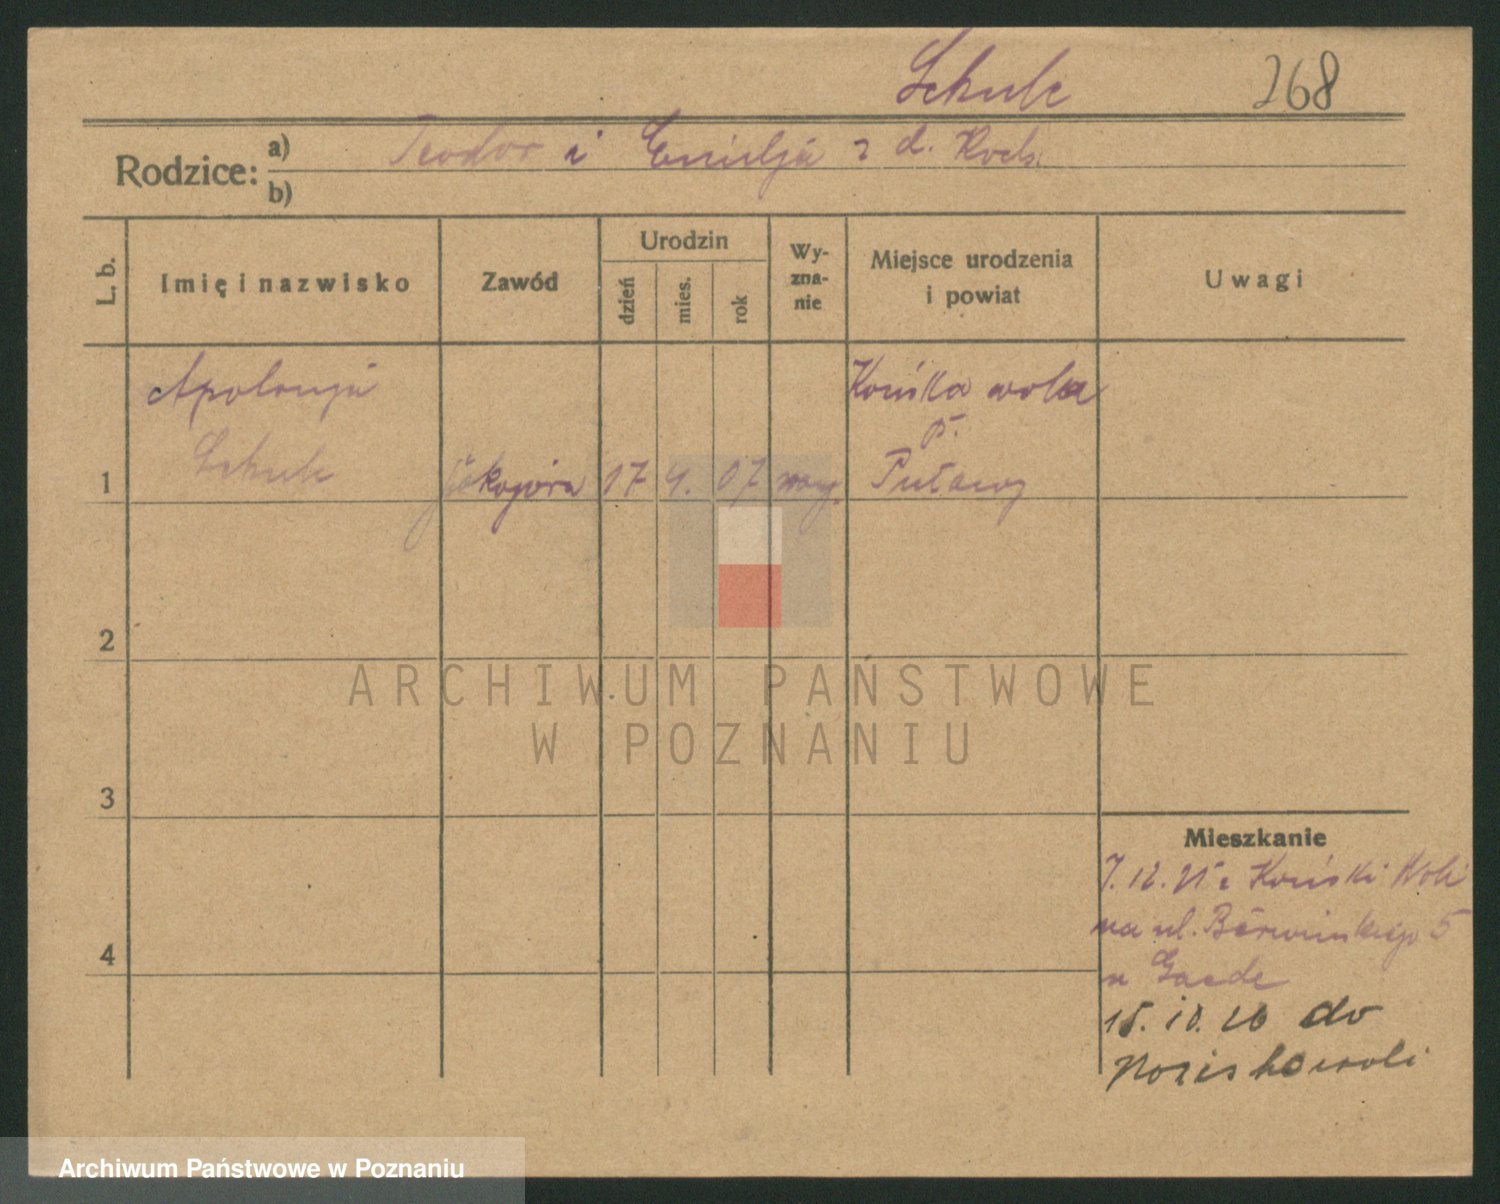 Schulc 268
Rodzice: a) Teodor i Emilja z d. Roch.
b)
L. b. Imię i nazwisko Zawód Urodzin dzień mies. rok Wyznanie Miejsce urodzenia i powiat Uwagi
Apolonja Końska wola
p.
1 Schulc 17 9. 07 Puławy
2
3
4
Mieszkanie
7.12.25 z Końskiwoli
na ul. Berwińskiego 5
u Gaede
15.10.26 do
ARCHIWUM PAŃSTWOWE
W POZNANIU
Archiwum Państwowe w Poznaniu